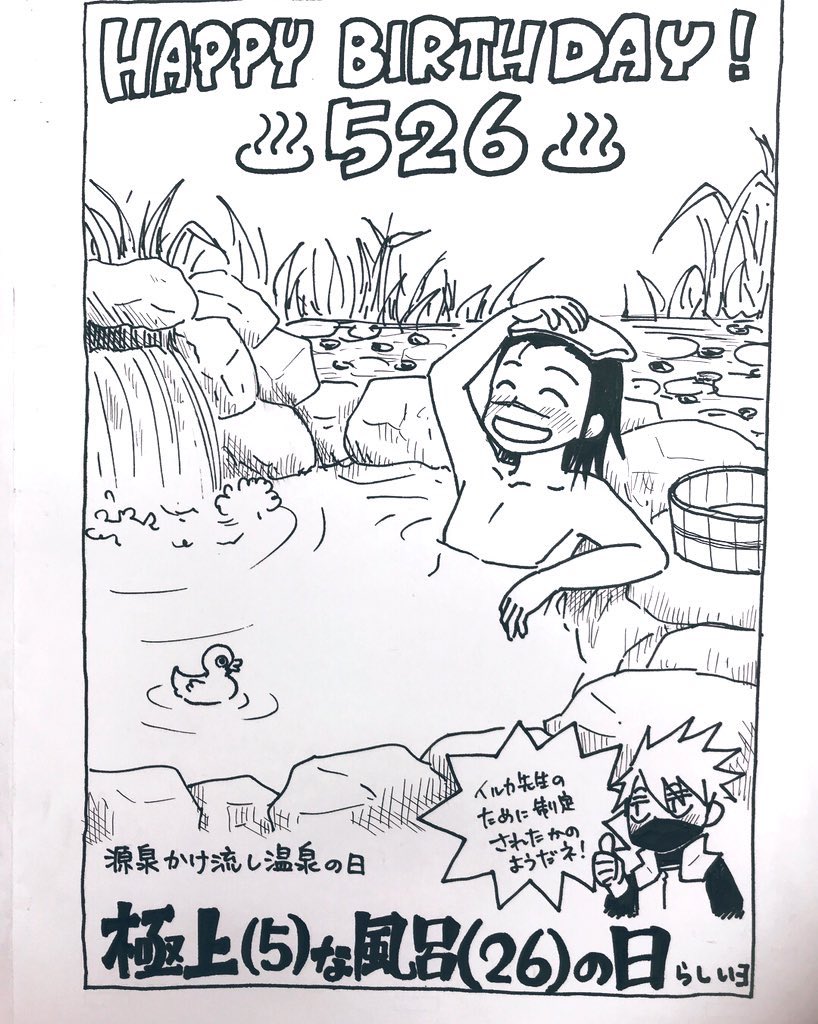 HAPPY BIRTHDAY!
♨526♨
イルカ先生の
ために制定
されたかの
ようだネ!
源泉かけ流し温泉の日
極上(5)な風呂(26)の日らしいヨ